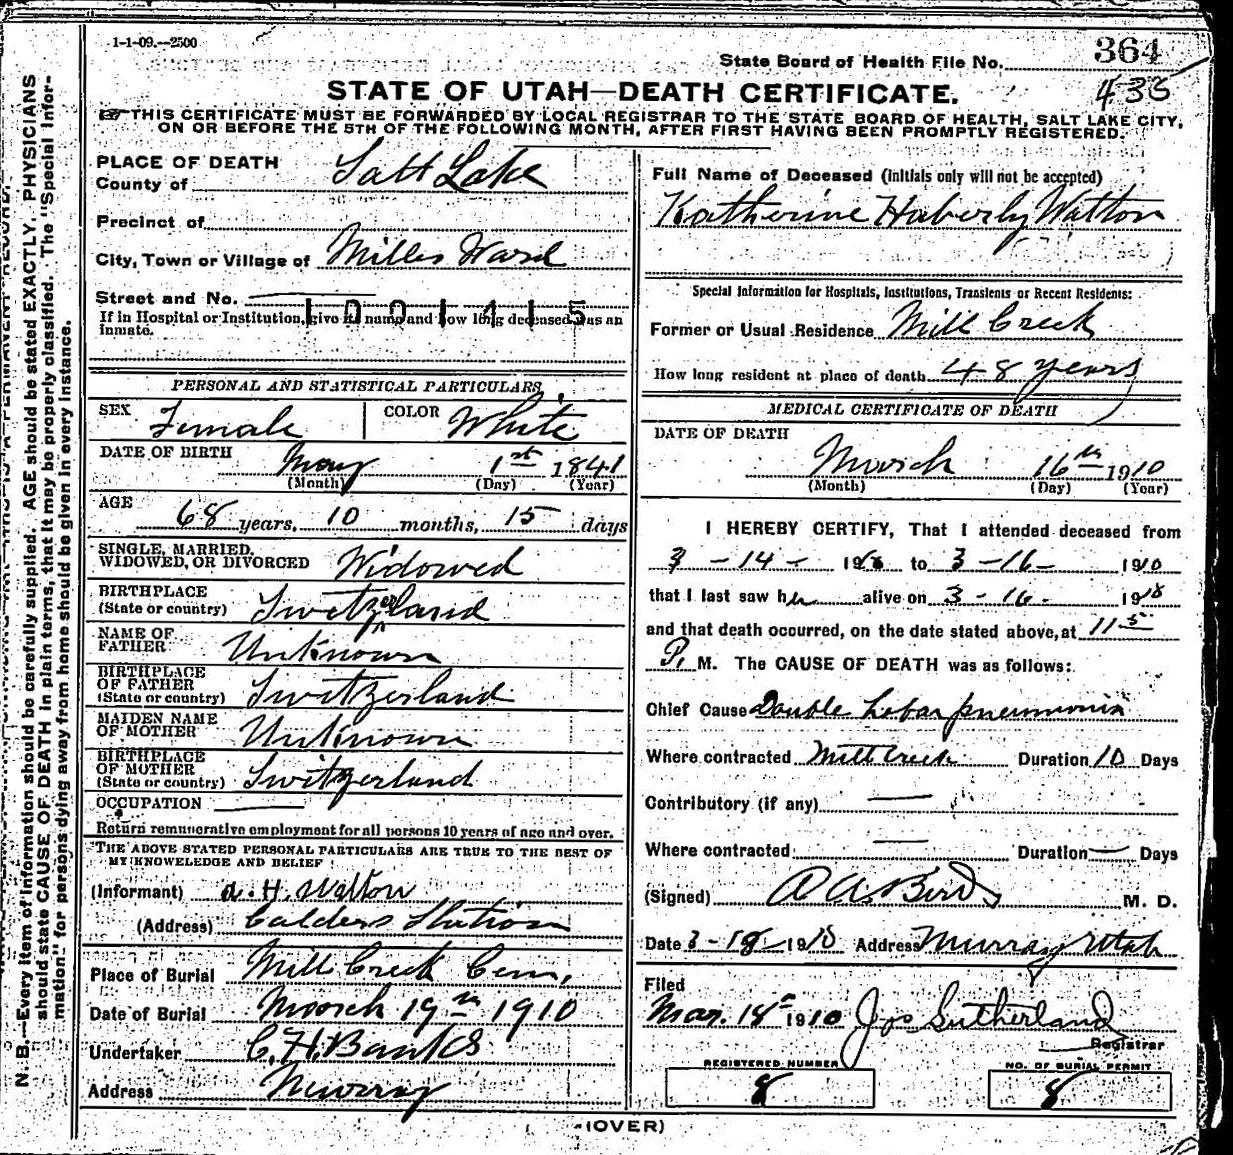 1-1-09.--2500
State Board of Health File No. 364
433
STATE OF UTAH—DEATH CERTIFICATE.
☞ THIS CERTIFICATE MUST BE FORWARDED BY LOCAL REGISTRAR TO THE STATE BOARD OF HEALTH, SALT LAKE CITY,
ON OR BEFORE THE 5TH OF THE FOLLOWING MONTH, AFTER FIRST HAVING BEEN PROMPTLY REGISTERED.
N. B.—Every item of information should be carefully supplied. AGE should be stated EXACTLY. PHYSICIANS
should state CAUSE OF DEATH in plain terms, that it may be properly classified. The "Special Infor-
mation" for persons dying away from home should be given in every instance.
PLACE OF DEATH
County of Salt Lake
Precinct of
City, Town or Village of Milles Ward
Street and No.
1001415
If in Hospital or Institution, give its name and how long deceased was an
inmate.
PERSONAL AND STATISTICAL PARTICULARS
SEX Female COLOR White
DATE OF BIRTH May 1st 1841
(Month) (Day) (Year)
AGE 68 years, 10 months, 15 days
SINGLE, MARRIED,
WIDOWED, OR DIVORCED Widowed
BIRTHPLACE
(State or country) Switzerland
NAME OF
FATHER Unknown
BIRTHPLACE
OF FATHER
(State or country) Switzerland
MAIDEN NAME
OF MOTHER Unknown
BIRTHPLACE
OF MOTHER
(State or country) Switzerland
OCCUPATION
Return remunerative employment for all persons 10 years of age and over.
THE ABOVE STATED PERSONAL PARTICULARS ARE TRUE TO THE BEST OF
MY KNOWLEDGE AND BELIEF
(Informant) A. H. Walton
(Address) Calders Station
Place of Burial Mill Creek Cem,
Date of Burial March 19th 1910
Undertaker C. H. Banks
Address Murray
Full Name of Deceased (Initials only will not be accepted)
Katherine Haberly Walton
Special Information for Hospitals, Institutions, Transients or Recent Residents:
Former or Usual Residence Mill Creek
How long resident at place of death 48 years
MEDICAL CERTIFICATE OF DEATH
DATE OF DEATH
March 16th 1910
(Month) (Day) (Year)
I HEREBY CERTIFY, That I attended deceased from
3 - 14 - 1910 to 3 - 16 - 1910
that I last saw her alive on 3 - 16 - 1910
and that death occurred, on the date stated above, at 11 5
P. M. The CAUSE OF DEATH was as follows:
Chief Cause Double Lobar pneumonia
Where contracted Mill Creek Duration 10 Days
Contributory (if any) —
Where contracted — Duration — Days
(Signed) A A Bird M. D.
Date 3-18-1910 Address Murray Utah
Filed
Mar. 18th 1910 Jos Sutherland
Registrar
REGISTERED NUMBER
8
NO. OF BURIAL PERMIT
8
(OVER)